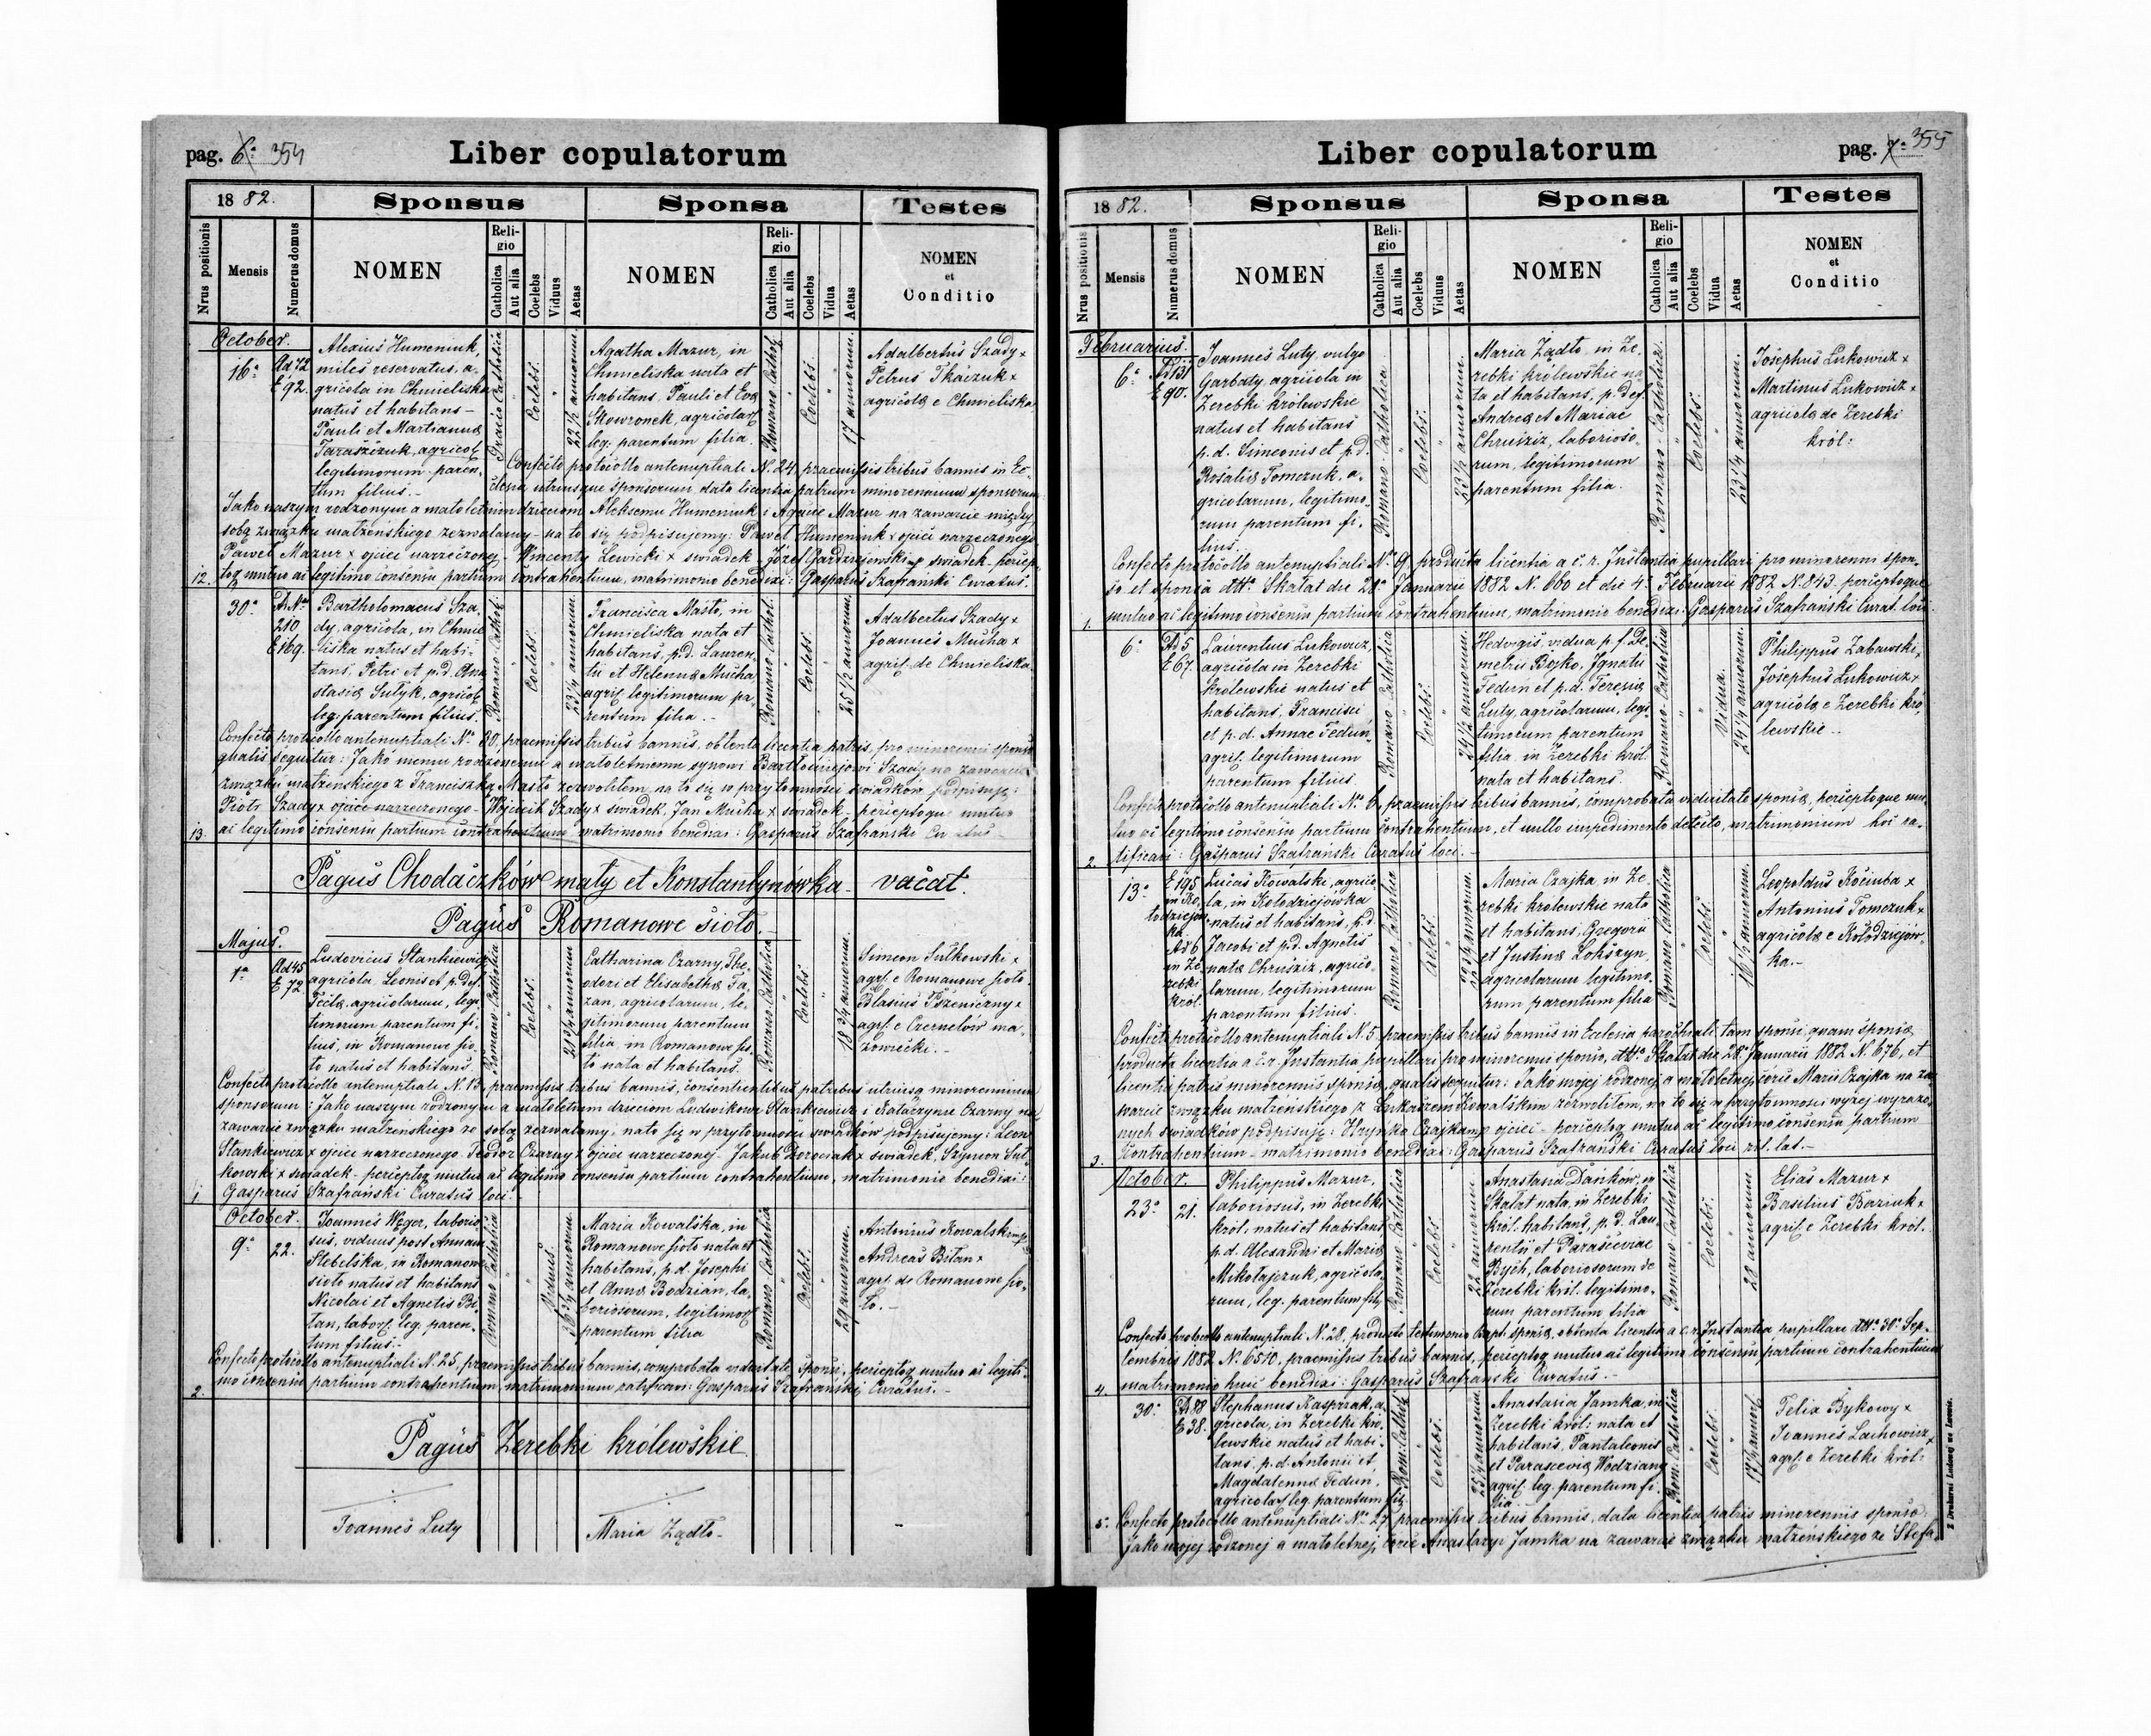 pag. 6ª 354
Liber copulatorum
1882.
Sponsus
Sponsa
Testes
Nrus positionis
Mensis
Numerus domus
NOMEN
Religio
Catholica
Aut alia
Coelebs
Viduus
Aetas
NOMEN
Religio
Catholica
Aut alia
Coelebs
Vidua
Aetas
NOMEN
et
Conditio
October.
16ª
Ad 72
E 92.
Alexius Humeniuk,
miles reservatus, a-
gricola in Chmieliska
natus et habitans -
Pauli et Martianna
Taraszczuk, agricol
legitimorum paren-
tum filius.-
Graeco Catholica
Coelebs.
22 1/2 annorum.
Agatha Mazur, in
Chmieliska nata et
habitans, Pauli et Eva
Skowronek, agricolar
leg. parentum filia.
Romano Cathol.
Coelebs.
17 annorum.
Adalbertus Szady x
Petrus Tkaczuk x
agricolæ e Chmieliska
Confecto protocollo antenuptiali N. 24, praemissis tribus bannis in Ec-
clesia utriusque sponsorum, data licentia patrum minorennium sponsorum:
Jako naszym rodzonym a małoletnim dzieciom Aleksemu Humeniuk i Agacie Mazur na zawarcie między
sobą związku małżeńskiego zezwalamy - na to się podpisujemy: Paweł Humeniuk x ojciec narzeczonego
Paweł Mazur x ojciec narzeczonej - Wincenty Lewicki x swiadek Józef Gardziejewski x swiadek, percep-
12. toq mutuo ac legitimo consensu partium contrahentium, matrimonio benedixi: Gasparus Szafranski Curatus.
30ª
Ad Nº
210
E 169.
Bartholomaeus Sza-
dy, agricola, in Chmie-
liska natus et habi-
tans, Petri et p.d. Ana-
stasiæ Sutyk, agricol
leg. parentum filius.
Romano Cathol.
Coelebs.
23 1/2 annorum.
Francisca Masto, in
Chmieliska nata et
habitans, p.d. Lauren-
tii et Helenæ Mucha
agric. legitimorum pa-
rentum filia.-
Romano Cathol.
Coelebs.
25 1/2 annorum.
Adalbertus Szady x
Joannes Mucha x
agric. de Chmieliska.
Confecto protocollo antenuptiali Nº 30, praemissis tribus bannis, obtenta licentia patris, pro minorenni sponso
qualis sequitur: Jako memu rodzonemu a małoletniemu synowi Bartłomiejowi Szady na zawarcie
związku małżenskiego z Franciszką Masto zezwolitem, na to się w przytomności swiadków podpisuję:
Piotr Szady x ojciec narzeczonego - Wojciech Szady x swiadek, Jan Mucha x swiadek - perceptoqu mutuo
13. ac legitimo consensu partium contrahentium - matrimonio benedixi: Gasparus Szafranski Curatus -
Pagus Chodaczków mały et Konstantynówka - vacat.
Pagus Romanowe siolo.
Majus.
1ª
Ad 45
E 72
Ludovicus Stankiewicz
agricola Leonis et p.def.
Teclæ agricolarum, legi-
timorum parentum fi-
lius, in Romanowe sio-
lo natus et habitans.
Romano Catholica
Coelebs.
21 3/4 annorum
Catharina Czarny, The-
odori et Elisabethæ Ta-
zan, agricolarum, le-
gitimorum parentum
filia, in Romanowe sio-
lo nata et habitans.
Romano Catholica
Coelebs.
18 3/4 annorum.
Simeon Sulkowski x
agr. e Romanowe siolo.
Blasius Pszeniczny x
agr. e Czernelów ma-
zowiecki.-
Confecto protocollo antenuptiale N. 13, praemissis tribus bannis, consentientibus patribus utriusq minorennium
sponsorum: Jako naszym rodzonym a małoletnim dzieciom Ludwikowi Stankiewicz i Katarzynie Czarny na
zawarcie związku małżenskiego ze sobą zezwalamy, nato się w przytomności swiadków podpisujemy: Leon
Stankiewicz x ojciec narzeczonego. Teodor Czarny x ojciec narzeczonej - Jakub Dorociak x swiadek, Szymon Sul-
kowski x swiadek - perceptoq mutuo ac legitimo consensu partium contrahentium, matrimonio benedixi:
1. Gasparus Szafranski Curatus loci.
October.
9ª
22.
Joannes Węger, laborio-
sus, viduus post Annam
Stebelska, in Romanowe
siolo natus et habitans
Nicolai et Agnetis Bi-
tan, labor. leg. paren-
tum filius.-
Romano Catholica
Viduus.
36 3/4 annorum
Maria Kowalska, in
Romanowe siolo nata et
habitans, p.d. Josephi
et Annæ Bodzian, la-
boriosorum, legitimor
parentum filia
Romano Catholica
Coelebs.
29 annorum.
Antonius Kowalski mp.
Andreas Bitan x
agr. de Romanowe sio-
lo.-
Confecto protocollo antenuptiali N. 25, praemissis tribus bannis, comprobata viduitate sponsi, perceptoq mutuo ac legiti-
2. mo consensu partium contrahentium, matrimonium ratificavi: Gasparus Szafranski Curatus.-
Pagus Zerebki królewskie
Joannes Luty
Maria Ządło-
Liber copulatorum
pag. 7ª 355
1882.
Sponsus
Sponsa
Testes
Nrus positionis
Mensis
Numerus domus
NOMEN
Religio
Catholica
Aut alia
Coelebs
Viduus
Aetas
NOMEN
Religio
Catholica
Aut alia
Coelebs
Vidua
Aetas
NOMEN
et
Conditio
Februarius.
6ª
Ad 131
E 90.
Joannes Luty, vulgo
Garbaty, agricola in
Zerebki królewskie
natus et habitans
p.d. Simeonis et p.d.
Rosaliæ Tomczuk, a-
gricolarum, legitimo-
rum parentum fi-
lius.
Romano-Catholica.
Coelebs.
23 1/2 annorum.
Maria Ządło, in Ze-
rebki królewskie na-
ta et habitans, p.def.
Andreæ et Mariae
Chruściz, laborioso-
rum, legitimorum
parentum filia.
Romano-Catholica.
Coelebs.
23 1/4 annorum.
Josephus Lukowicz x
Martinus Lukowicz x
agricolæ de Zerebki
król:
Confecto protocollo antenuptiali Nº 9, producta licentia a c.r. Instantia pupillari pro minorenni spon-
so et sponsa dttº Skałat die 28ª Januarii 1882 N. 660 et die 4ª Februarii 1882 N. 843 - perceptoque
1. mutuo ac legitimo consensu partium contrahentium, matrimonio benedixi: Gasparus Szafrański Curat. loci.
6ª
Ad 5
E 67.
Laurentius Lukowicz,
agricola in Zerebki
królewskie natus et
habitans, Francisci
et p.d. Annae Fedun,
agric. legitimorum
parentum filius
Romano-Catholica
Coelebs.
24 1/2 annorum.
Hedvigis, vidua p.f. De-
metrii Bojko, Ignatii
Fedun et p.d. Teresiæ
Luty, agricolarum, legi-
timorum parentum
filia in Zerebki król.
nata et habitans.
Romano-Catholica
Vidua.
24 1/4 annorum.
Philippus Zabawski x
Josephus Lukowicz x
agricolæ e Zerebki kró-
lewskie..
Confecto protocollo antenuptiali Nº 6, praemissis tribus bannis, comprobata viduitate sponsæ, perceptoque mu-
tuo ac legitimo consensu partium contrahentium, et nullo impedimento detecto, matrimonium hoc ra-
2. tificavi: Gasparus Szafrański Curatus loci.-
13ª
E 195
in Ko-
łodziejów-
ka.
Ad 6
in Ze-
rebki
król.
Lucas Kowalski, agrico-
la, in Kołodziejówka
natus et habitans, p.d.
Jacobi et p.d. Agnetis
natæ Chruściz, agrico-
larum, legitimorum
parentum filius.
Romano Catholica
Coelebs.
Maria Czajka, in Ze-
rebki krolewskie nata
et habitans, Gregorii
et Justinæ Lohszyn,
agricolarum legitimo-
rum parentum filia
Romano Catholica
Coelebs.
16 1/2 annorum.
Leopoldus Kociuba x
Antonius Tomczuk x
agricolæ e Kołodziejów-
ka.-
Confecto protocollo antenuptiali N. 5, praemissis tribus bannis in Ecclesia parochiali, tam sponsi quam sponsæ,
producta licentia a c.r. Instantia pupillari pro minorenni sponso, dttº Skałat die 28ª Januarii 1882 N. 676, et
licentia patris minorennis sponsæ, qualis sequitur: Jako mojej rodzonej a małoletniej córce Maria Czajka na za-
warcie związku małżeńskiego z Łukaszem Kowalskim zezwolitem, na to się w przytomności wyżej wyrażo-
nych swiadków podpisuję: Hrynko Czajka x ojciec - perceptoq mutuo ac legitimo consensu partium
3. Contrahentium - matrimonio benedixi: Gasparus Szafrański Curatus loci rit. lat.-
October.
23ª
21.
Philippus Mazur,
laboriosus, in Zerebki
król. natus et habitans
p.d. Alexandri et Mariæ
Mikołajczuk, agricola-
rum, leg. parentum fil
Romano-Catholica
Coelebs.
22 annorum
Anastasia Danków, in
Skałat nata, in Zerebki
król. habitans, p.d. Lau-
rentii et Parasceviae
Bych, laboriosorum de
Zerebki król. legitimo-
rum parentum filia
Romano-Catholica
Coelebs.
20 annorum
Elias Mazur x
Basilius Baziuk x
agric. e Zerebki król.
Confecto protocollo antenuptiali N. 28, producto testimonio bapt. sponsæ, obtenta licentia a c.r. Instantia pupillari dttº 30ª Sep-
tembris 1882 N. 6510, praemissis tribus bannis, perceptoq mutuo ac legitimo consensu partium contrahentium
4. matrimonio huic benedixi: Gasparus Szafranski Curatus.-
30ª
Ad 88
E 38.
Stephanus Kasprzak, a-
gricola, in Zerebki kró-
lewskie natus et habi-
tans, p.d. Antonii et
Magdalenæ Fedun,
agricolar leg. parentum fil.
Rom. Cathol.
Coelebs.
25 1/4 annorum.
Anastasia Jamka, in
Zerebki król: nata et
habitans, Pantaleonis
et Parasceviæ Wodziany
agric. leg. parentum fi-
lia
Rom. Catholica
Coelebs.
17 1/2 annor.
Felix Bykowy x
Joannes Lachowicz x
agr. e Zerebki król:
5. Confecto protocollo antenuptiali Nº 27, praemissis tribus bannis, data licentia patris minorennis sponsæ:
Jako mojej rodzonej a małoletniej córce Anastazyi Jamka na zawarcie związku małżeńskiego ze Stefa-
Z Drukarni Ludowej we Lwowie.